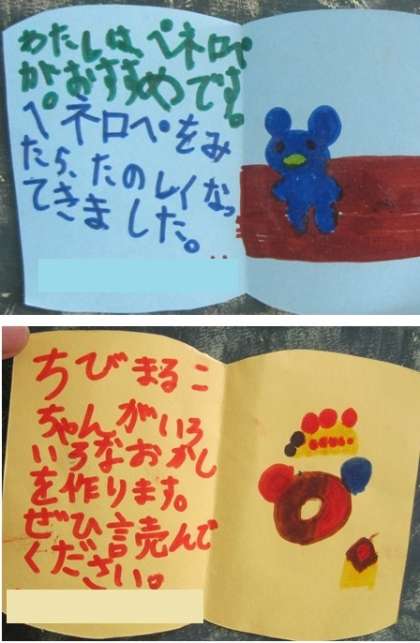 わたしは、ペネロペ
が、おすすめです。
ペネロペをみ
たら、たのしくなっ
てきました。
ちびまるこ
ちゃんがいろ
いろなおかし
を作ります。
ぜひ読んで
ください。